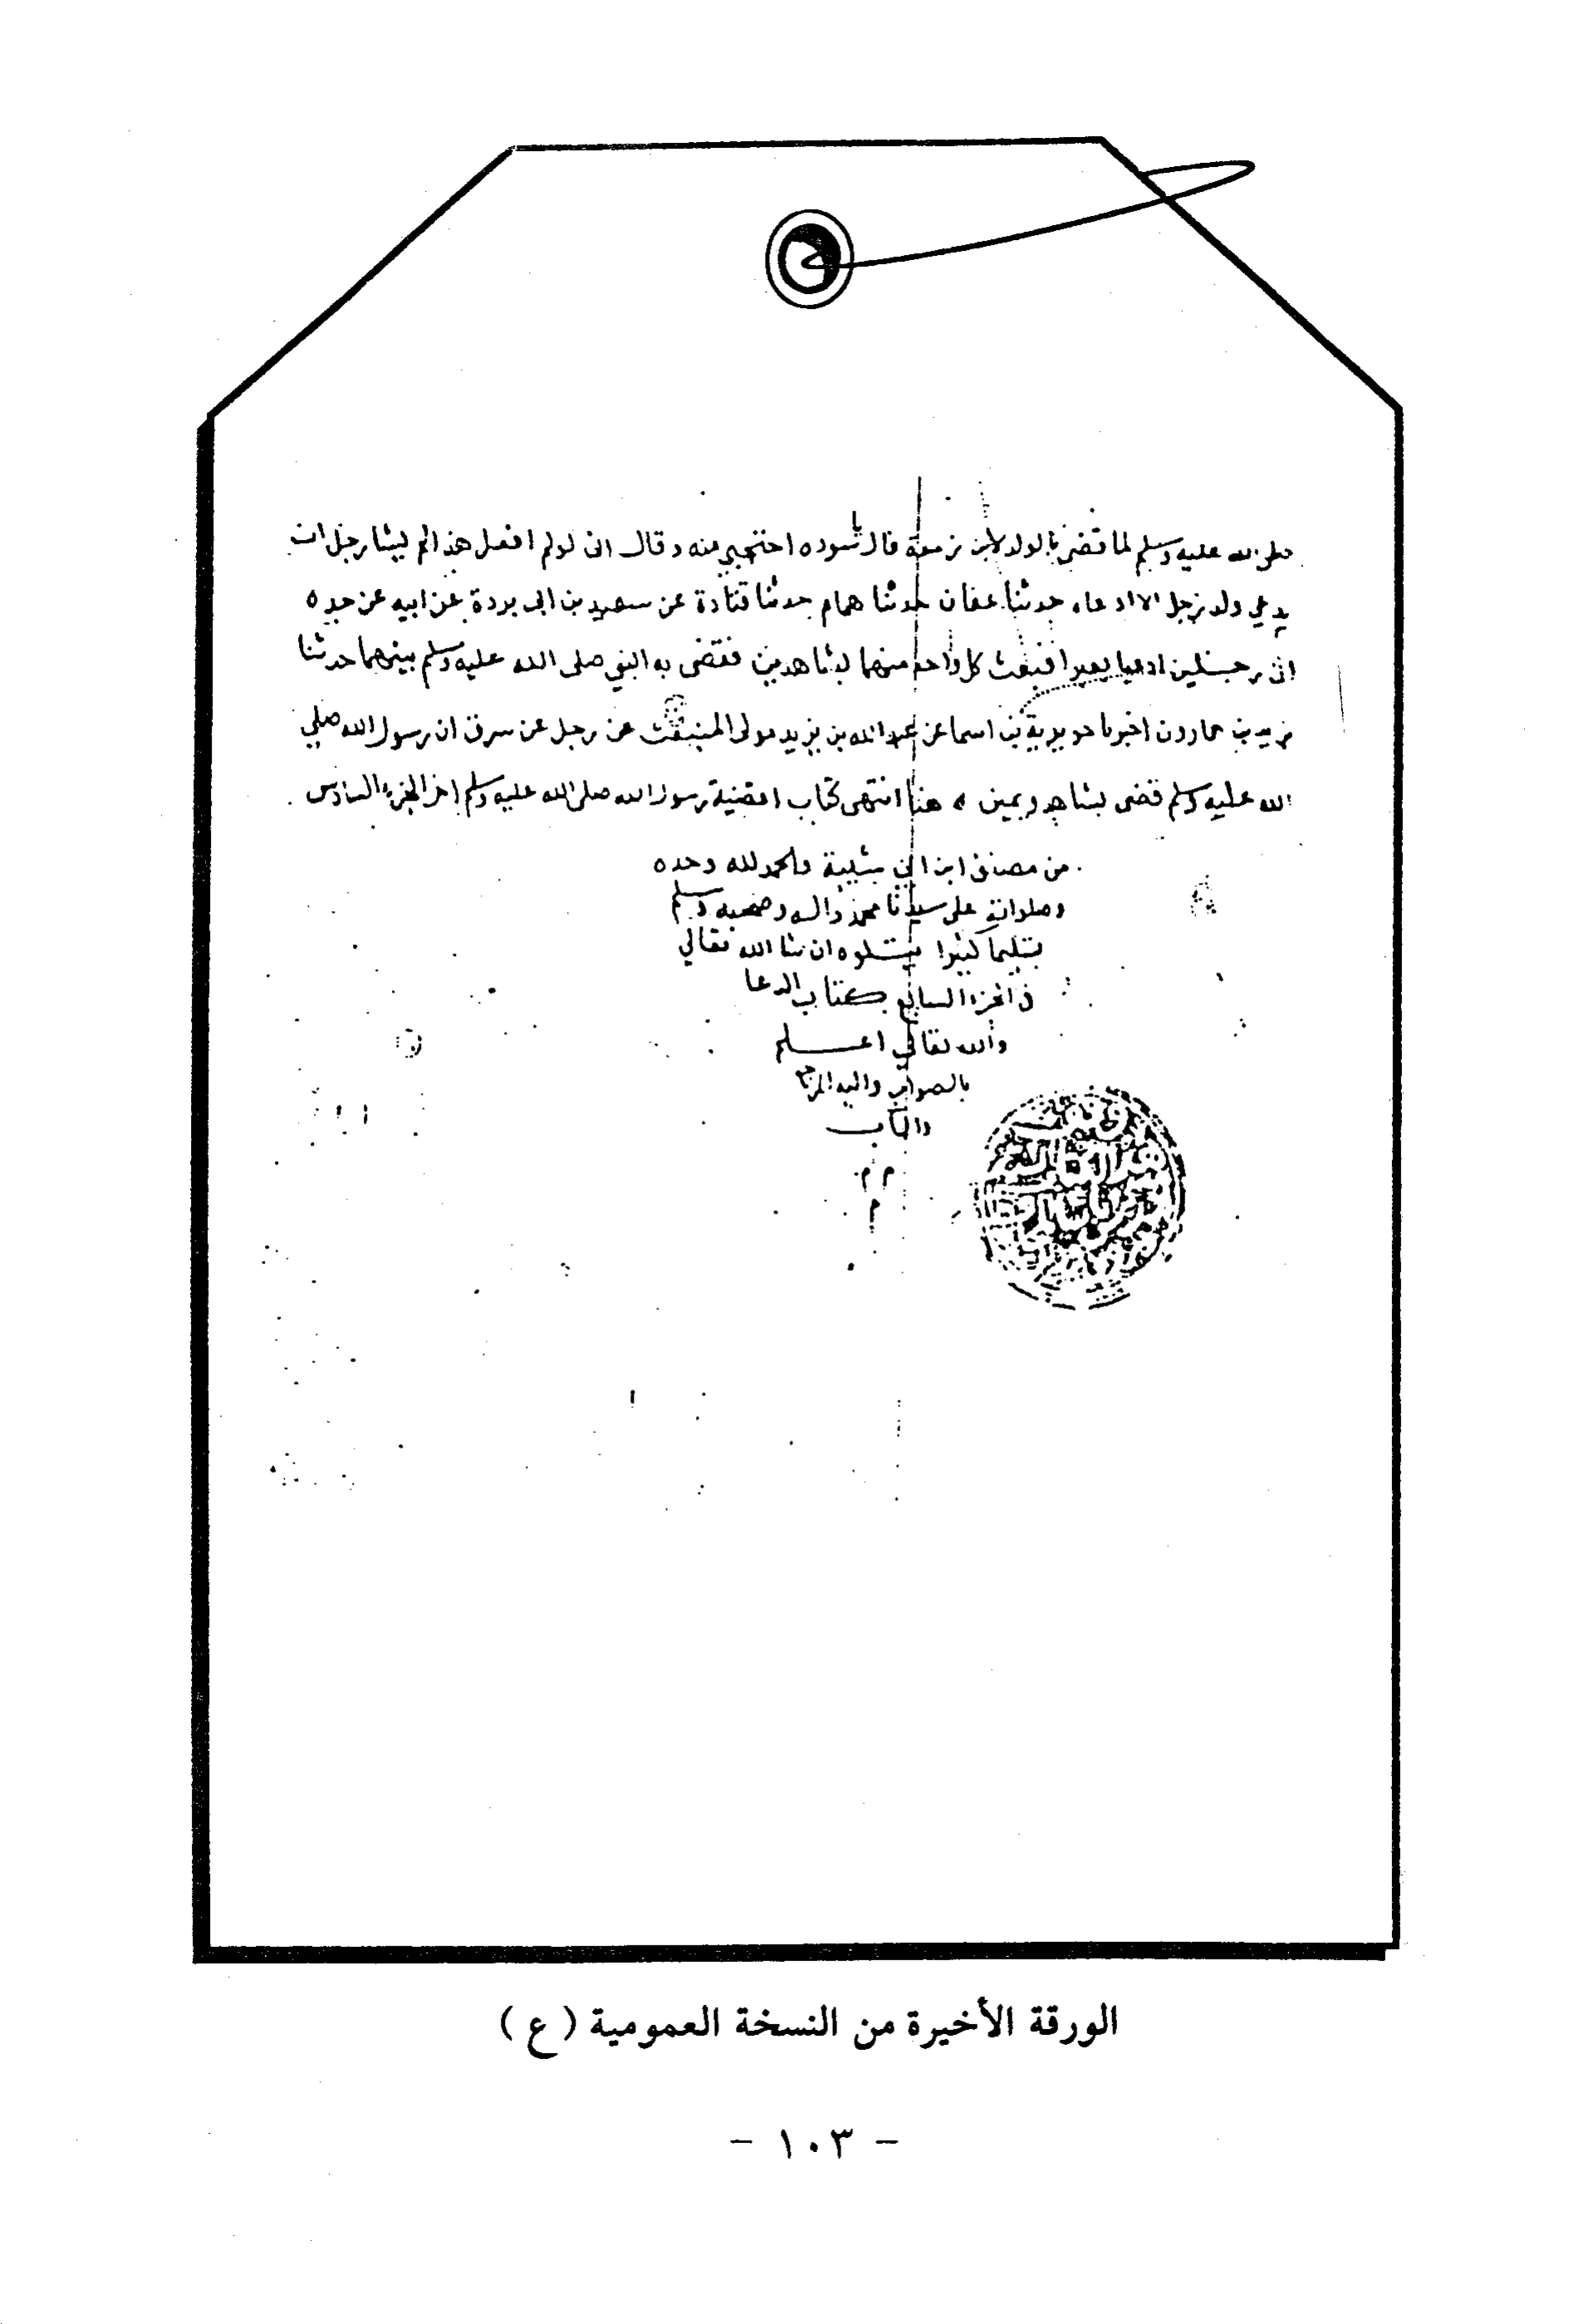 صلى الله عليه وسلم لما قضى بالولد لابن زمعة قال لسوده احتجبي منه وقال اني لولم افعل هذا لم يشا رجل ان
يدعي ولد رجل الا ادعاه حدثنا عفان حدثنا همام حدثنا قتادة عن سعيد بن ابي بردة عن ابيه عن جده
ان رجلين ادعيا بعيرا فبعث كل واحد منهما بشاهدين فقضى به النبي صلى الله عليه وسلم بينهما حدثنا
يزيد بن هارون اخبرنا جويرية بن اسما عن عبد الله بن يزيد مولى المنبعث عن رجل عن سرق ان رسول الله صلى
الله عليه وسلم قضى بشاهد ويمين ه هنا انتهى كتاب اقضية رسول الله صلى الله عليه وسلم اخر الجزء السادس
من مصنف ابن ابي شيبة والحمد لله وحده
وصلواته على سيدنا محمد واله وصحبه وسلم
تسليما كثيرا يتلوه ان شا الله تعالي
في الجزء السابع كتاب الدعا
والله تعالي اعلم
بالصواب واليه المرجع
والماب
م م
م
الورقة الأخيرة من النسخة العمومية ( ع )
- ١٠٣ -